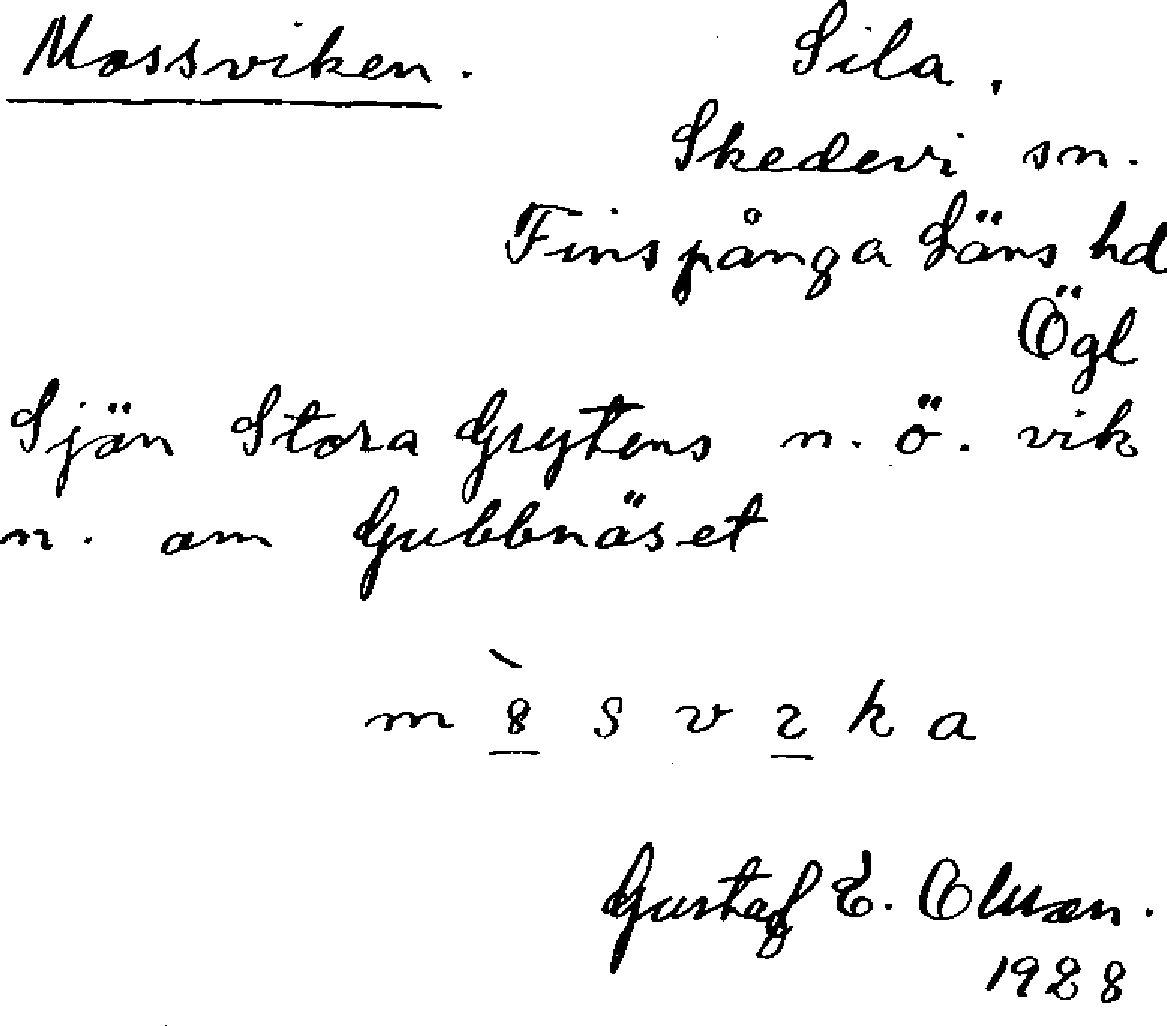 Mossviken. Sila,
Skedevi sn.
Finspånga Läns hd
Ögl
Sjön Stora Grytens n. ö. vik
n. om Gubbnäset
m 8̲̀ s v ɪ̲ k a
Gustaf E. Olsson.
1928